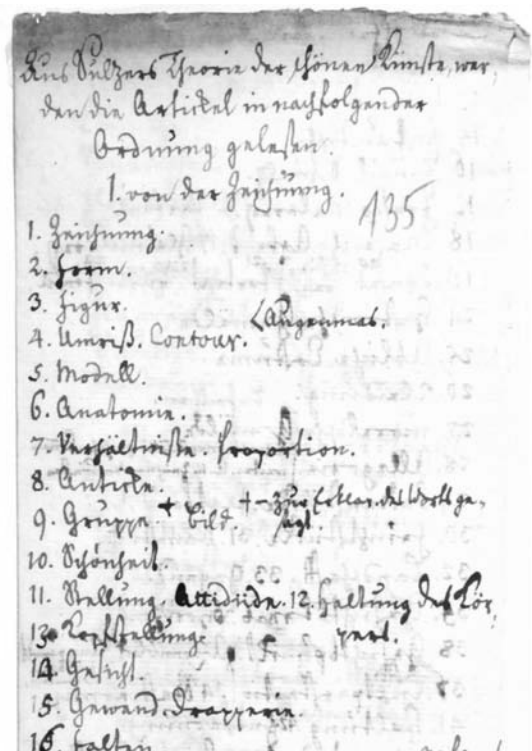 Aus Sulzers Theorie der schönen Künste, wer,
den die Artickel in nachfolgender
Ordnung gelesen.
1. von der Zeichnung.
135
1. Zeichnung.
2. Form.
3. Figur.
Augenmas.
4. Umriß. Contour.
5. Modell.
6. Anatomie.
7. Verhältniße. Proportion.
8. Anticke.
9. Gruppe. + Bild. + - zur Erklär. des Worts ge,
sagt.
10. Schönheit.
11. Stellung. Attidüde. 12. Haltung des Kör,
pers.
13. Kopfstellung.
14. Gesicht.
15. Gewand. Drapperie.
16. Falten